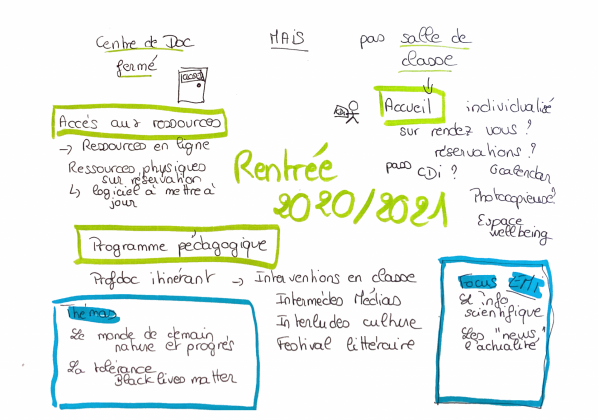 Centre de Doc
fermé
MAIS
pas salle de
classe
Accès aux ressources
→ Ressources en ligne
Ressources physiques
sur réservation
↳ logiciel à mettre à
jour
Accueil individualisé
sur rendez vous ?
réservations ?
pass CDi ? Gcalendar
Photocopieuse ?
Espace
wellbeing
Rentrée
2020/2021
Programme pédagogique
Profdoc itinérant → Interventions en classe
Intermèdes Médias
Interludes culture
Festival littéraire
Thémas
Le monde de demain
nature et progrés
La tolérance
Black lives matter
Focus EMI
L'info
scientifique
Les "news"
l'actualité